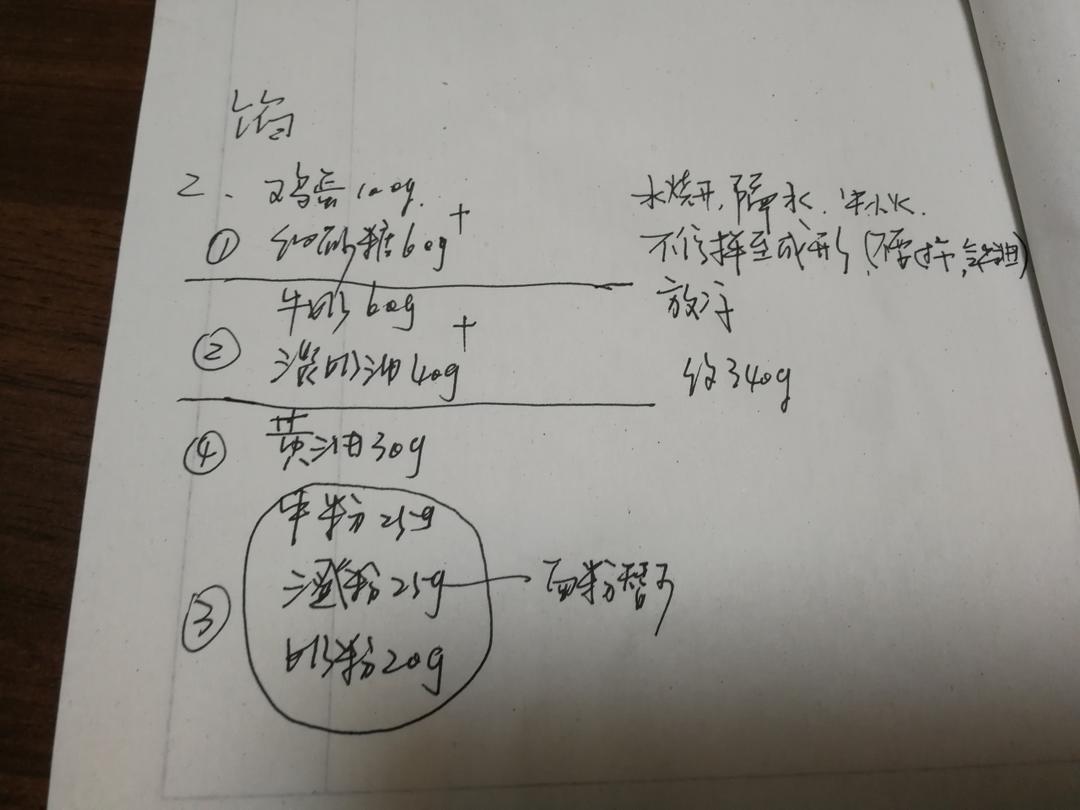 馅
2. 鸡蛋100g.
① 细砂糖60g +
牛奶60g
② 淡奶油40g +
④ 黄油30g
牛粉25g
③ 澄粉25g — 面粉替了
奶粉20g
水烧开,隔水.中小火.
不停搅至成形(不要过干,
放凉
约340g